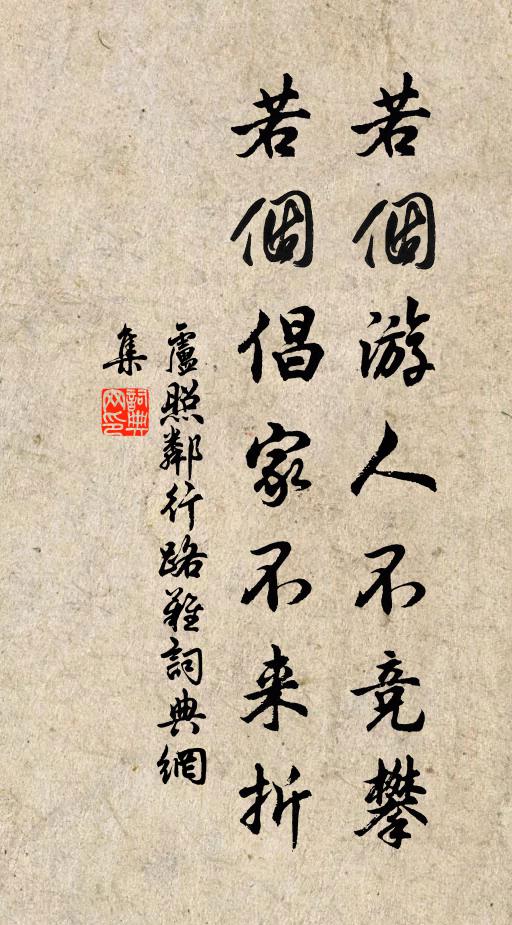 若個游人不竞攀
若個倡家不来折
盧照鄰行路難詞典網
集
詞典
网印